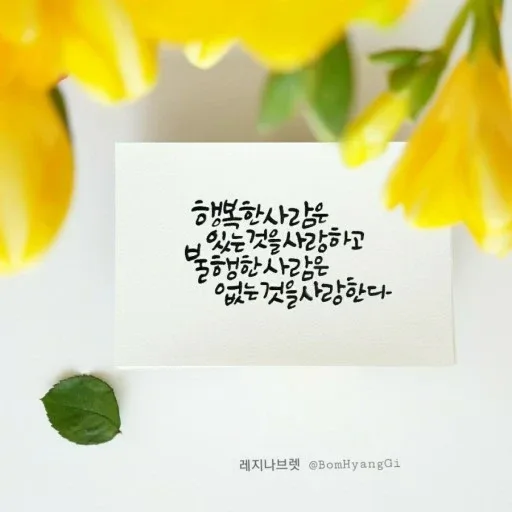 행복한사람은
있는것을사랑하고
불행한사람은
없는것을사랑한다
레지나브렛 @BomHyangGi